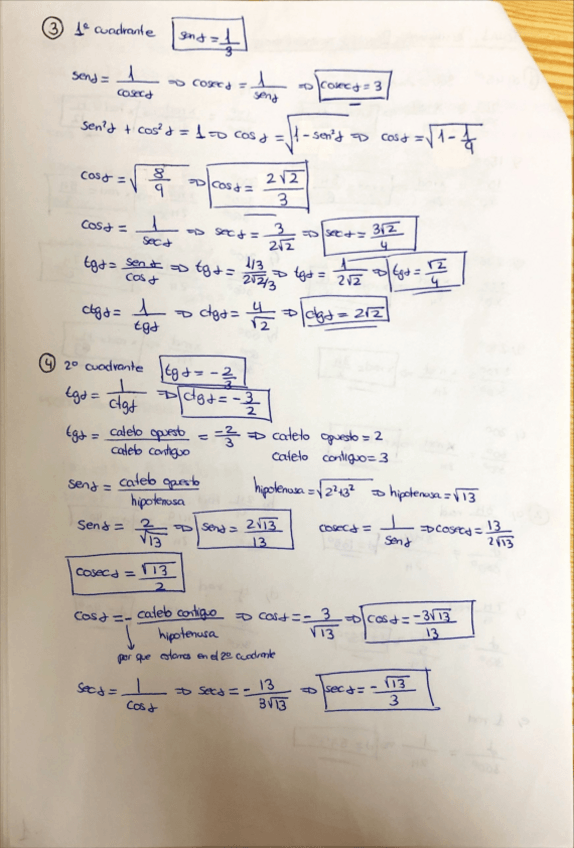 ③ 1º cuadrante sen α = 1/3
sen α = 1/cosec α ⇒ cosec α = 1/sen α ⇒ cosec α = 3
sen²α + cos²α = 1 ⇒ cos α = √(1 - sen²α) ⇒ cos α = √(1 - 1/9)
cos α = √(8/9) ⇒ cos α = 2√2/3
cos α = 1/sec α ⇒ sec α = 3/2√2 ⇒ sec α = 3√2/4
tg α = sen α/cos α ⇒ tg α = (1/3)/(2√2/3) ⇒ tg α = 1/2√2 ⇒ tg α = √2/4
ctg α = 1/tg α ⇒ ctg α = 4/√2 ⇒ ctg α = 2√2
④ 2º cuadrante tg α = -2/3
tg α = 1/ctg α ⇒ ctg α = -3/2
tg α = cateto opuesto/cateto contiguo = -2/3 ⇒ cateto opuesto = 2
cateto contiguo = 3
sen α = cateto opuesto/hipotenusa hipotenusa = √(2²+3²) ⇒ hipotenusa = √13
sen α = 2/√13 ⇒ sen α = 2√13/13 cosec α = 1/sen α ⇒ cosec α = 13/2√13
cosec α = √13/2
cos α = - cateto contiguo/hipotenusa ⇒ cos α = -3/√13 ⇒ cos α = -3√13/13
por que estamos en el 2º cuadrante
sec α = 1/cos α ⇒ sec α = -13/3√13 ⇒ sec α = -√13/3